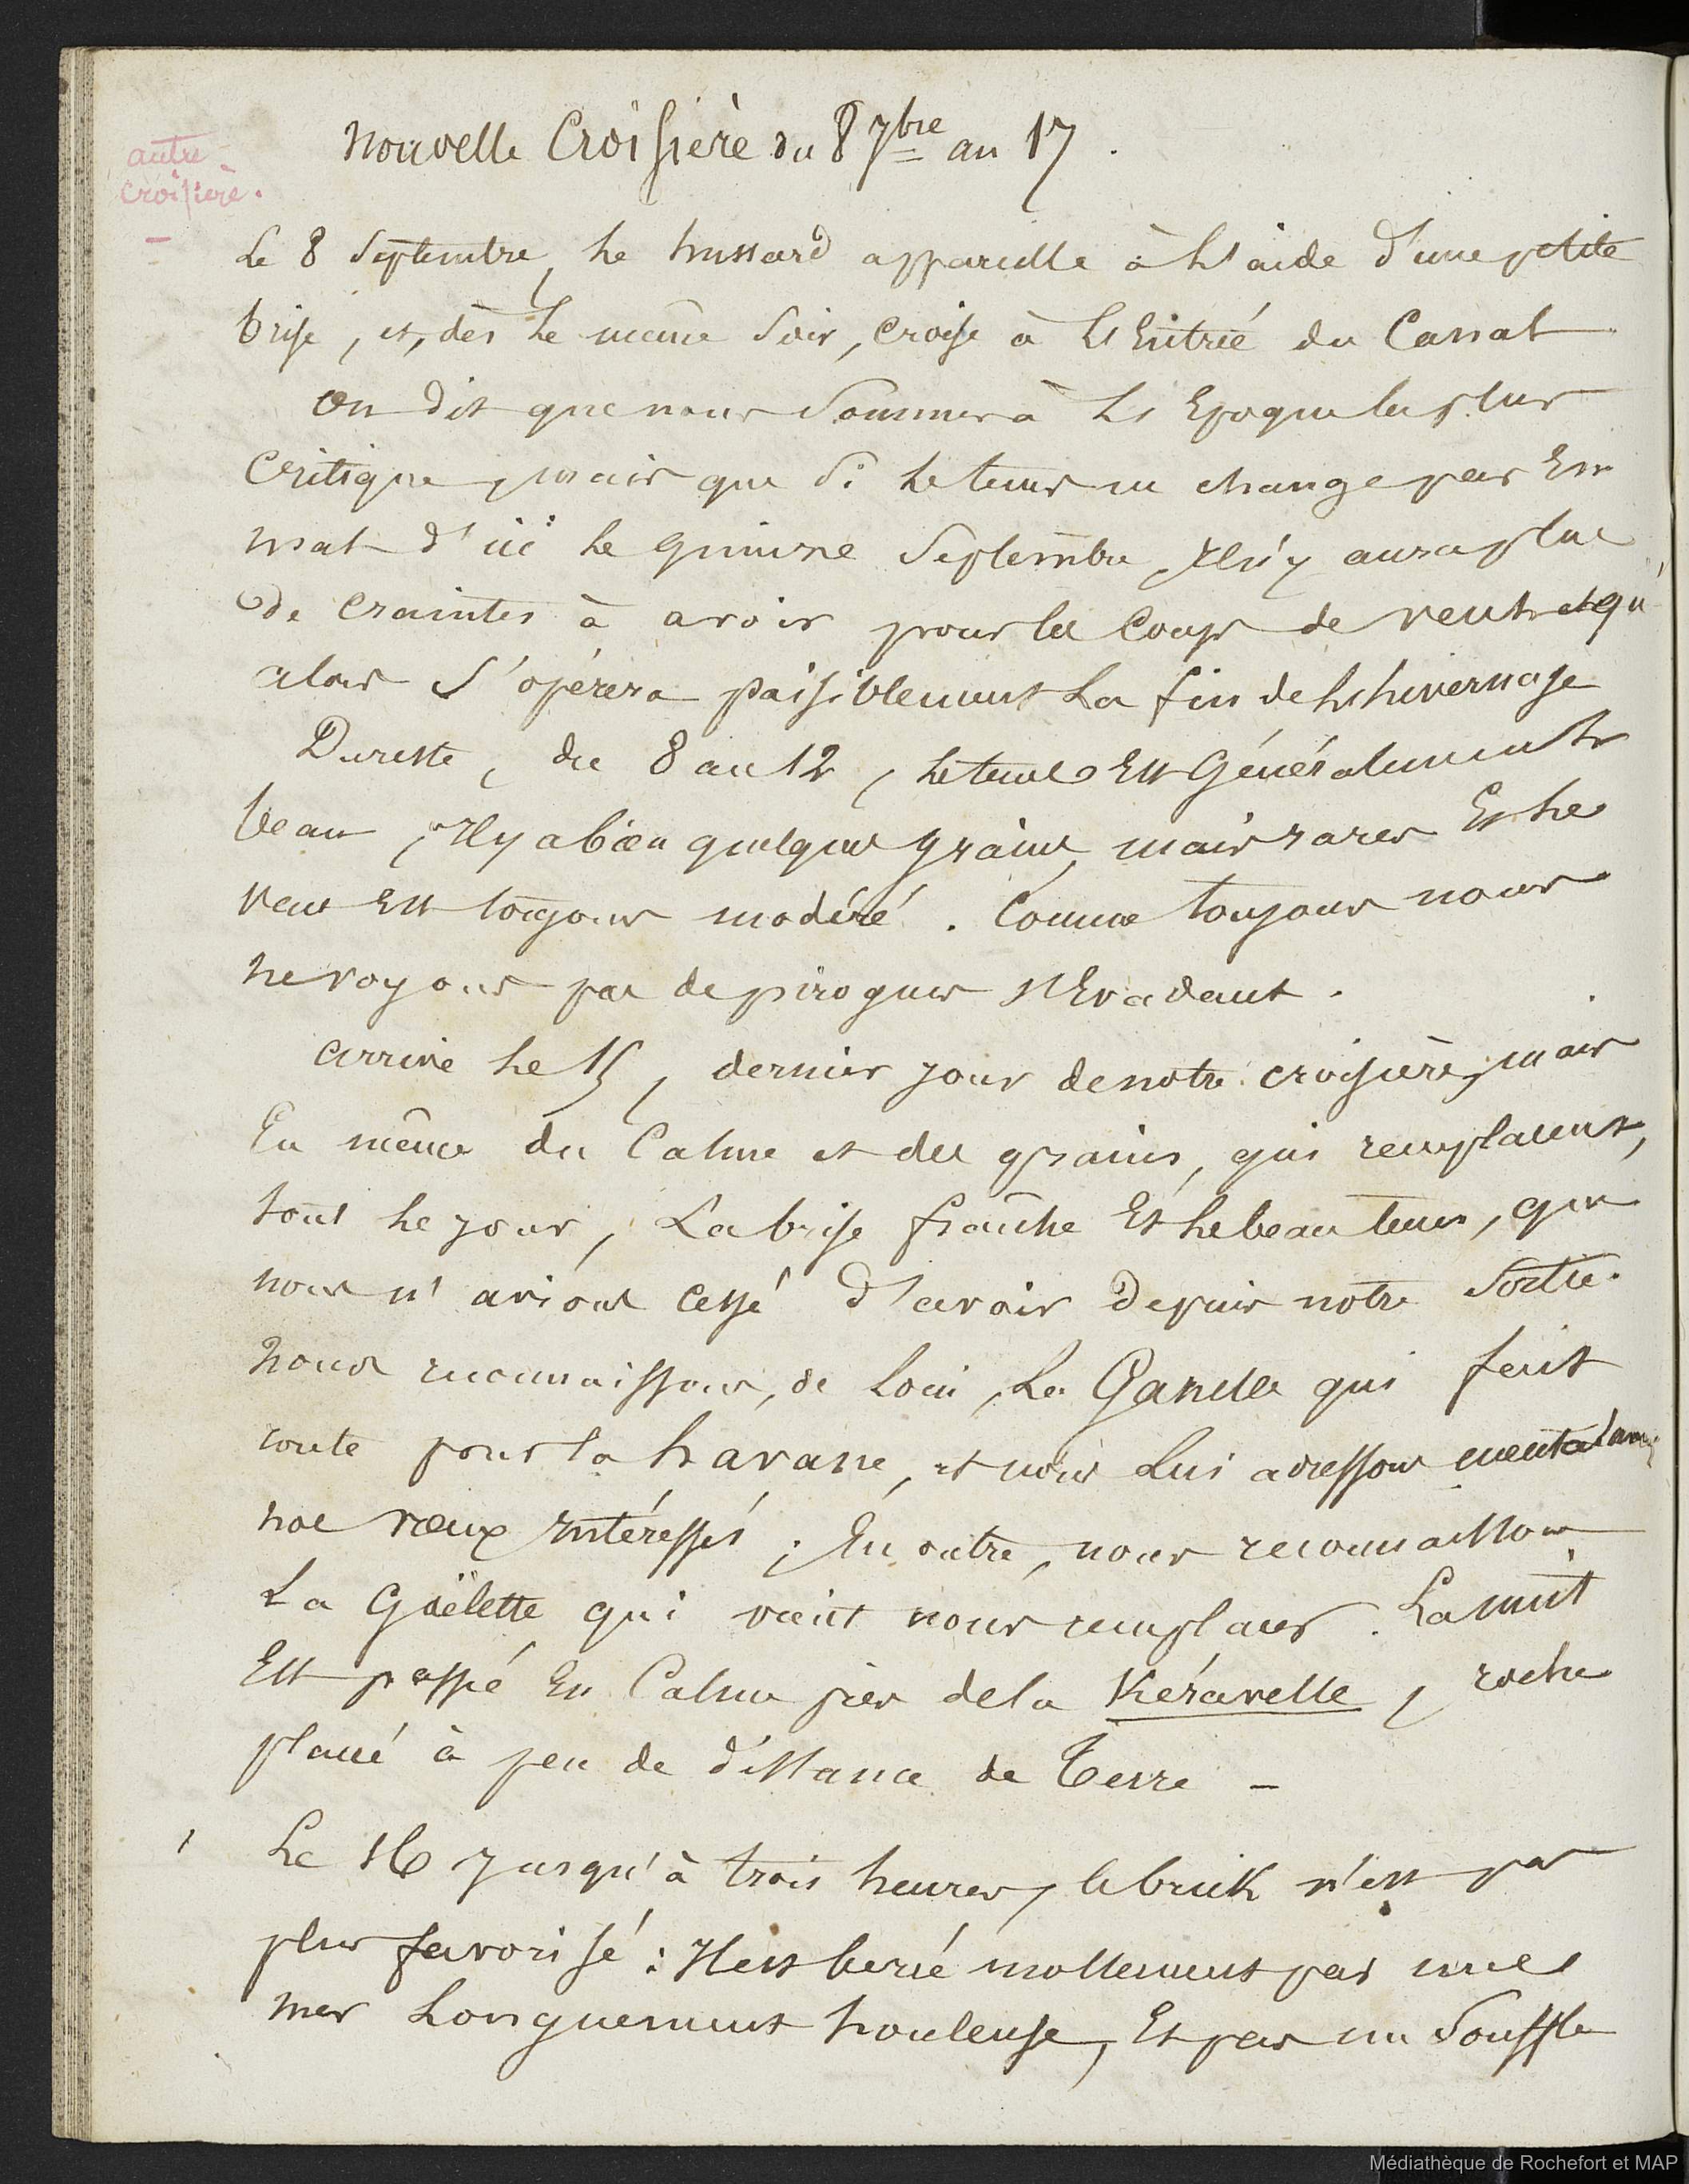 autre
croisière.
Nouvelle Croisière du 8 7bre au 17.
Le 8 Septembre, le hussard appareille à l'aide d'une petite
brise, et, dès le même soir, croise à l'Entrée du Canal
On dit que nous sommes à l'Epoque la plus
Critique, mais que si le tems ne change pas En
mal d'ici le quinze Septembre, Il n'y aura plus
de craintes à avoir pour les Coups de vent et qu'
alors s'opérera paisiblement la fin de l'hivernage
Dureste, du 8 au 12, le tems Est Généralement
beau, Il y a bien quelques grains, mais rares Et le
vent Est toujours modéré. Comme toujours nous
ne voyons pas de pirogues s'Evadant.
Arrive le 15, dernier jour de notre croisière, mais
En même du Calme et des grains, qui remplacent,
tout le jour, La brise fraîche Et le beau tems, que
nous n'avions cessé d'avoir depuis notre Sortie.
Nous reconnaissons, de loin, La Gazelle qui fait
route pour la havane, et nous Lui adressons mentalement
nos vœux Intéressés; En outre, nous reconnaissons
La Goëlette qui vient nous remplacer. La nuit
Est passé En Calme près de la Kéravelle, roche
placé à peu de distance de Terre –
Le 16 Jusqu'à trois heures, le brick n'est pas
plus favorisé: Il est bercé mollement par une
mer Longuement houleuse, Et par un Souffle
Médiathèque de Rochefort et MAP